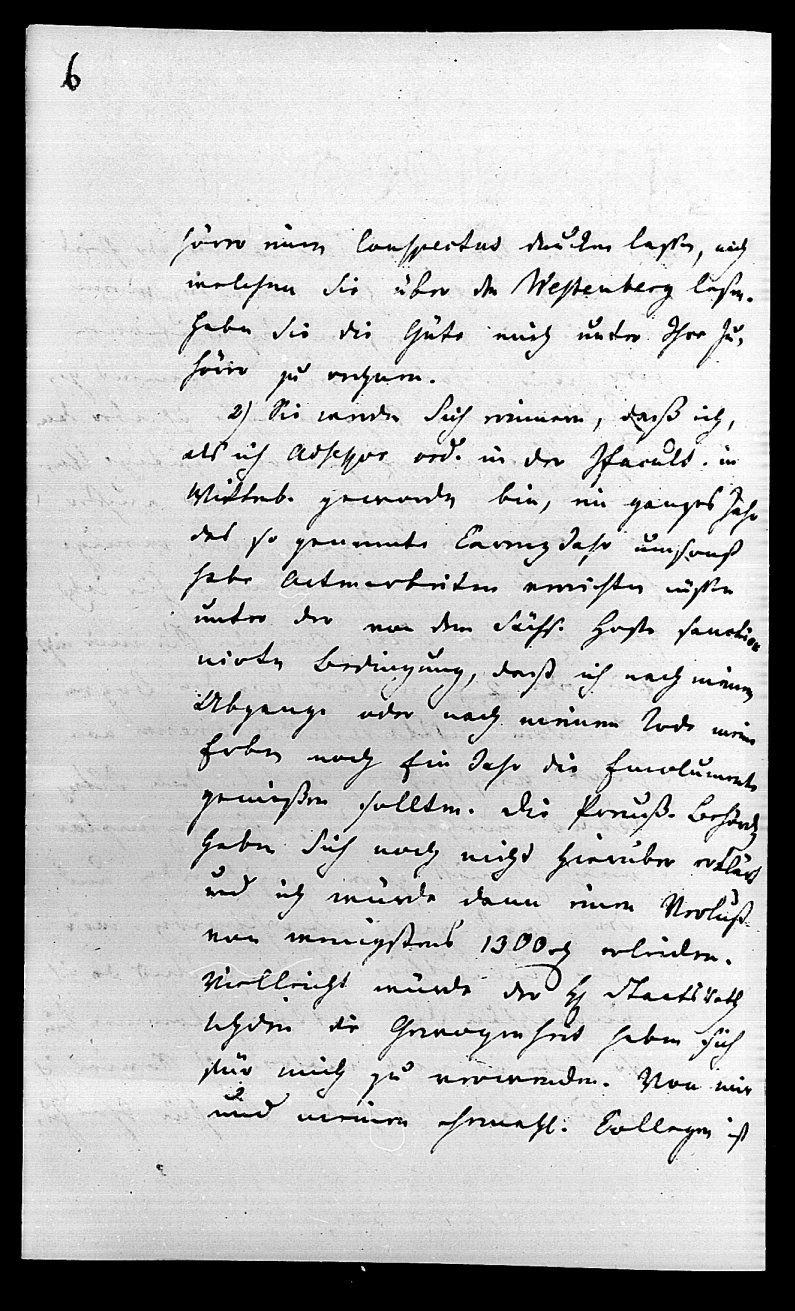 6
hörer einen Conspectus drucken lassen, nach
welchem Sie über den Westenberg lesen.
Haben Sie die Güte mich unter Ihre Zu-
hörer zu rechnen.
2) Sie werden Sich erinnern, daß ich,
als ich Adsessor ord. in der JFacult. in
Wittenb. geworden bin, ein ganzes Jahr
das so genannte Carenzjahr umsonst
habe Actenarbeiten verrichten müssen
unter der von dem Sächs. Hofe sanction
nirten Bedingung, daß ich nach meinem
Abgange oder nach meinem Tode meine
Erben noch Ein Jahr die Emolumente
genießen sollten. Die Preuß. Behörden
haben Sich noch nicht hierüber erklärt
und ich würde dann einen Verlust
von wenigstens 1300 rh erleiden.
Vielleicht würde der H Staatsrath
Uhden die Gewogenheit haben sich
für mich zu verwenden. Von mir
und meinen ehemahl. Collegen ist